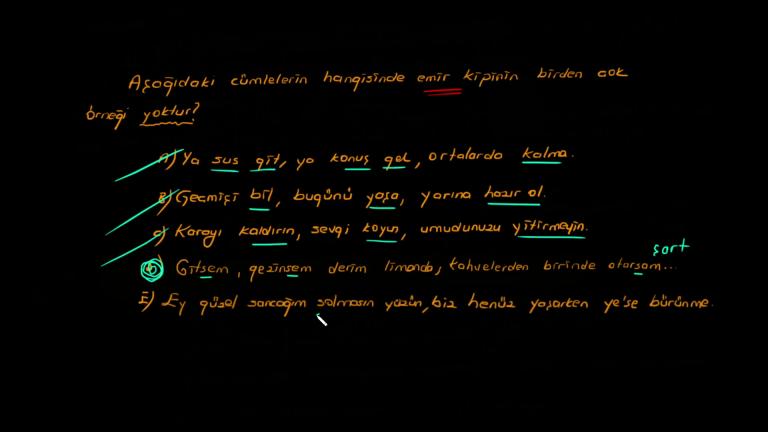 Aşağıdaki cümlelerin hangisinde emir kipinin birden çok
örneği yoktur?
A) Ya sus git, ya konuş gel, ortalarda kalma.
B) Geçmişi bil, bugünü yaşa, yarına hazır ol.
C) Karayı kaldırın, sevgi koyun, umudunuzu yitirmeyin.
şart
D) Gitsem, gezinsem derim limanda, kahvelerden birinde otursam...
E) Ey güzel sancağım solmasın yüzün, biz henüz yaşarken ye'se bürünme.